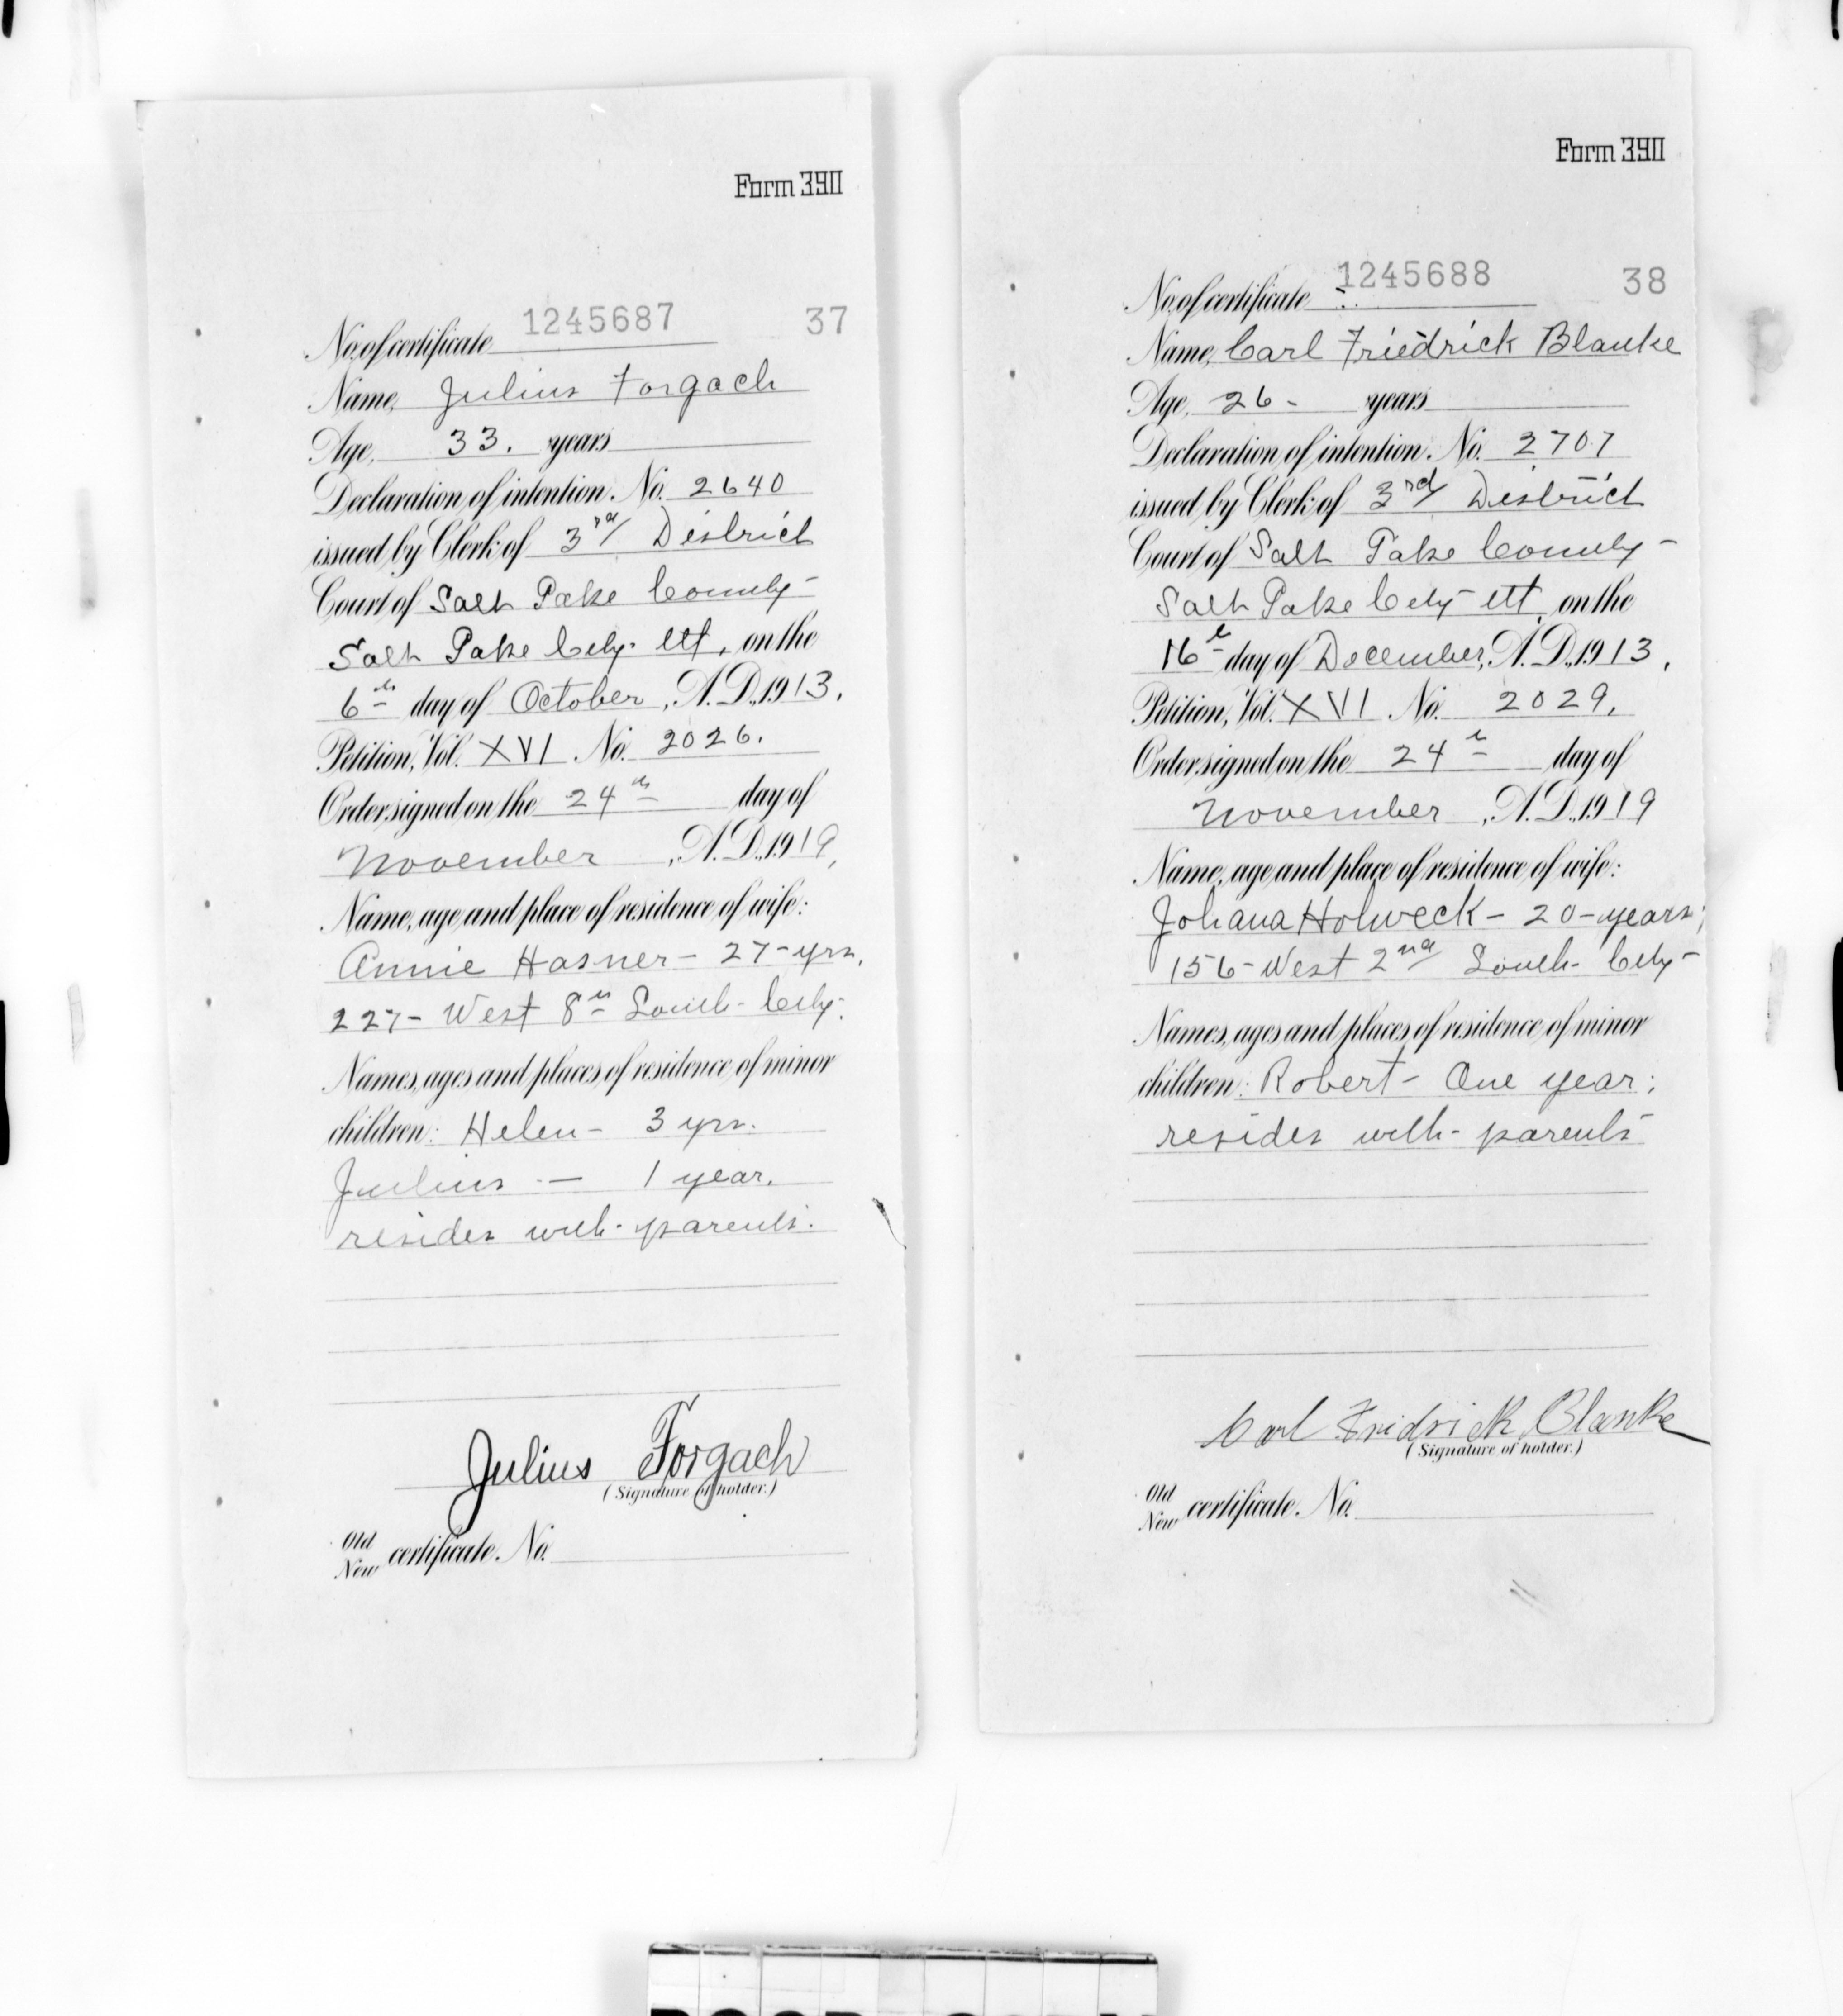 Form 390
1245687 37
No. of certificate
Name, Julius Forgach
Age, 33. years
Declaration of intention, No. 2640
issued by Clerk of 3rd District
Court of Salt Lake County-
Salt Lake City- Ut, on the
6th day of October, A.D., 1913.
Petition, Vol. XVI No. 2026.
Order signed on the 24th day of
November, A.D., 1919,
Name, age and place of residence of wife:
Annie Hasner - 27-yrs,
227- West 8th South- City.
Names, ages and places of residence of minor
children: Helen - 3 yrs.
Julius - 1 year.
resides with- parents.
Julius Forgach
(Signature of holder.)
Old
New certificate. No.
Form 390
1245688 38
No. of certificate
Name, Carl Friedrick Blanke
Age, 26- years
Declaration of intention. No. 2707
issued by Clerk of 3rd District
Court of Salt Lake County-
Salt Lake City- Ut, on the
16th day of December, A.D., 1913,
Petition, Vol. XVI No. 2029,
Order signed on the 24th day of
November, A.D., 1919
Name, age and place of residence of wife:
Johana Holweck - 20-years;
156-West 2nd South- City-
Names, ages and places of residence of minor
children: Robert - One year;
resides with- parents
Carl Fridrick Blanke
(Signature of holder.)
Old
New certificate. No.